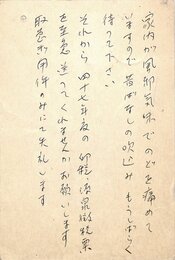 家内が風邪気味でのどを痛めて
いますので昔ばなしの吹込みもうしばらく
待って下さい
それから四十七年度の印税、源泉徴収票
を至急送ってくれませんかお願いします
取急ぎ用件のみにて失礼します